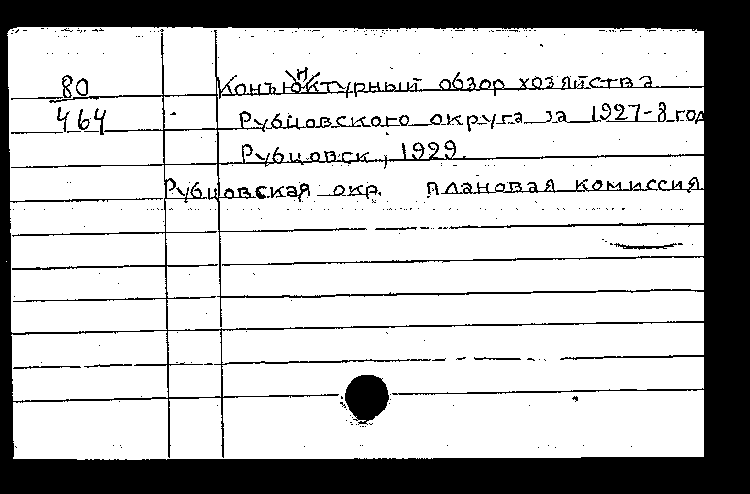 80
464
Конъюнктурный обзор хозяйства
Рубцовского округа за 1927-8 год
Рубцовск, 1929.
Рубцовская окр. плановая комиссия